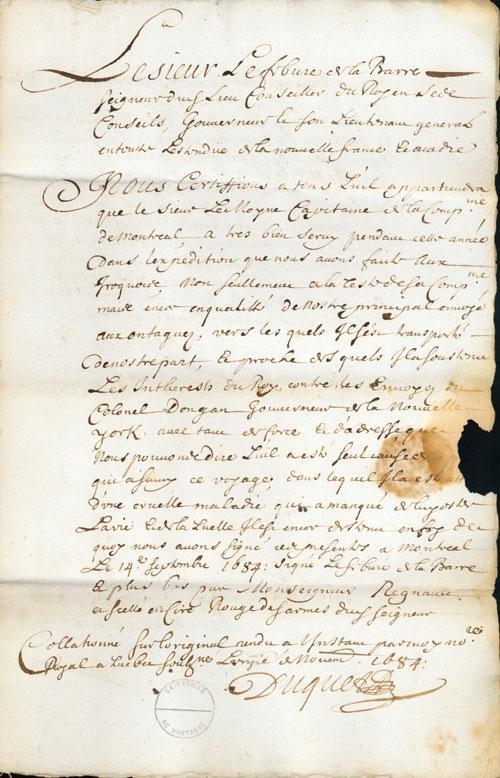 Le sieur Lefebure de la Barre
seigneur dud. Lieu Conseiller du Roy en Sede
Conseils, Gouverneur le son Lieutenant general
en toute Lestendue de la nouvelle france & acadie
Nous Certiffions a tous qu'il appartiendra
que le sieur Le Moyne Capitaine de la Comp.nie
de Montreal a tres bien seruy pendant cette année
dans lexpedition que nous auons faite aux
Iroquois, Non seullement a la teste de sa Comp.nie
mais encor en qualitté de Nostre principal enuoyé
aux ontaguez, vers les quels Il sest transporté
de nostre part, & proche desquels Il a soustenu
Les Intherests du Roy, contre les Enuoyez du
Colonel Dongan Gouuerneur de la Nouuelle
york. auec tant de force & dadresse que
Nous pouuons dire quil a esté seul cause de
qui a suiuy ce voyage, dans lequel Il a esté
d'une cruelle maladie qui a manqué de luy oster
La vie & de la quelle Il est encor detenu en foy de
quoy nous auons signé ces presentes a Montreal
Le 14e Septembre 1684. signé Lefebure de la Barre
& plus bas par Monseigneur Regnault
et scellé en Cire Rouge des armes dud. seigneur
Collationné sur loriginal rendu a Linstant par moy no.re
Royal a Quebec soubz.né Le de Nouem. 1684.
Duquet
DE MONTREAL